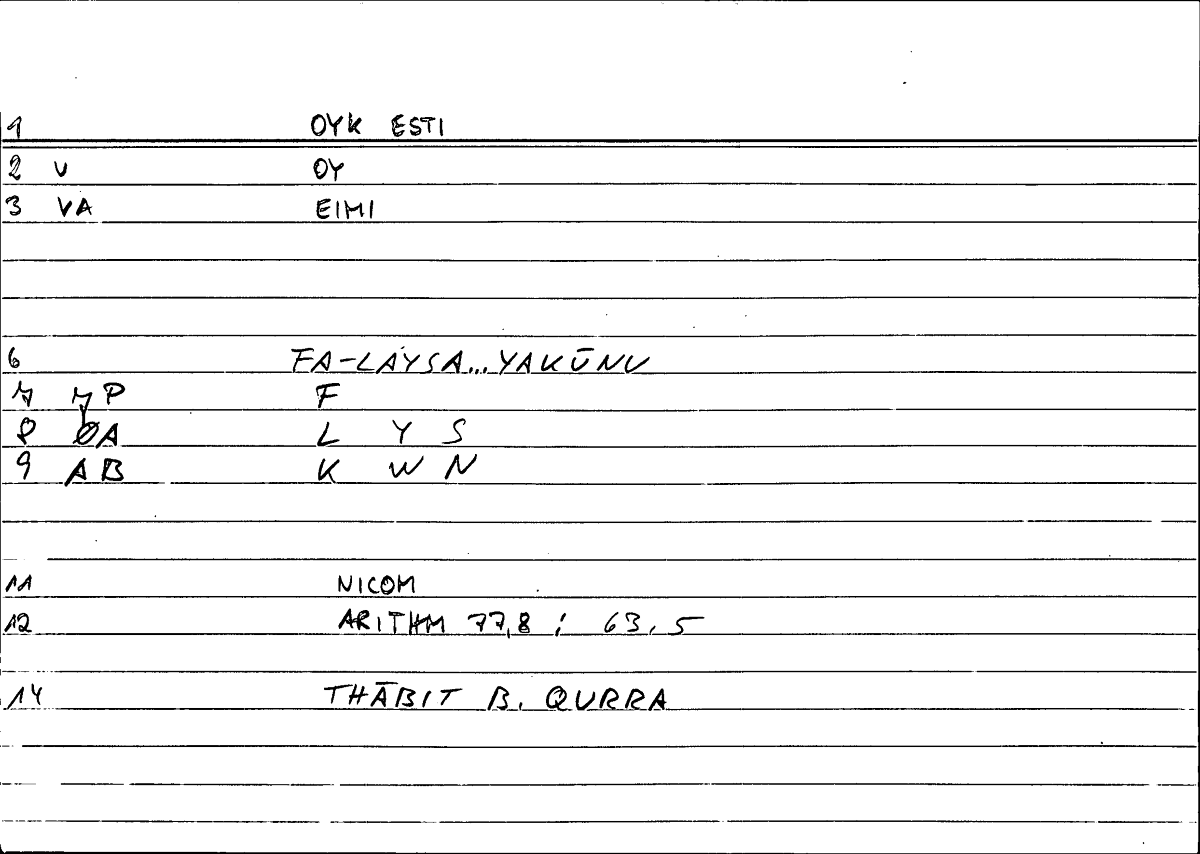 1 OYK ESTI
2 V OY
3 VA EIMI
6 FA-LAYSA...YAKŪNU
7 P F
8 A L Y S
9 AB K W N
11 NICOM
12 ARITHM 77,8 ; 63,5
14 THĀBIT B. QURRA